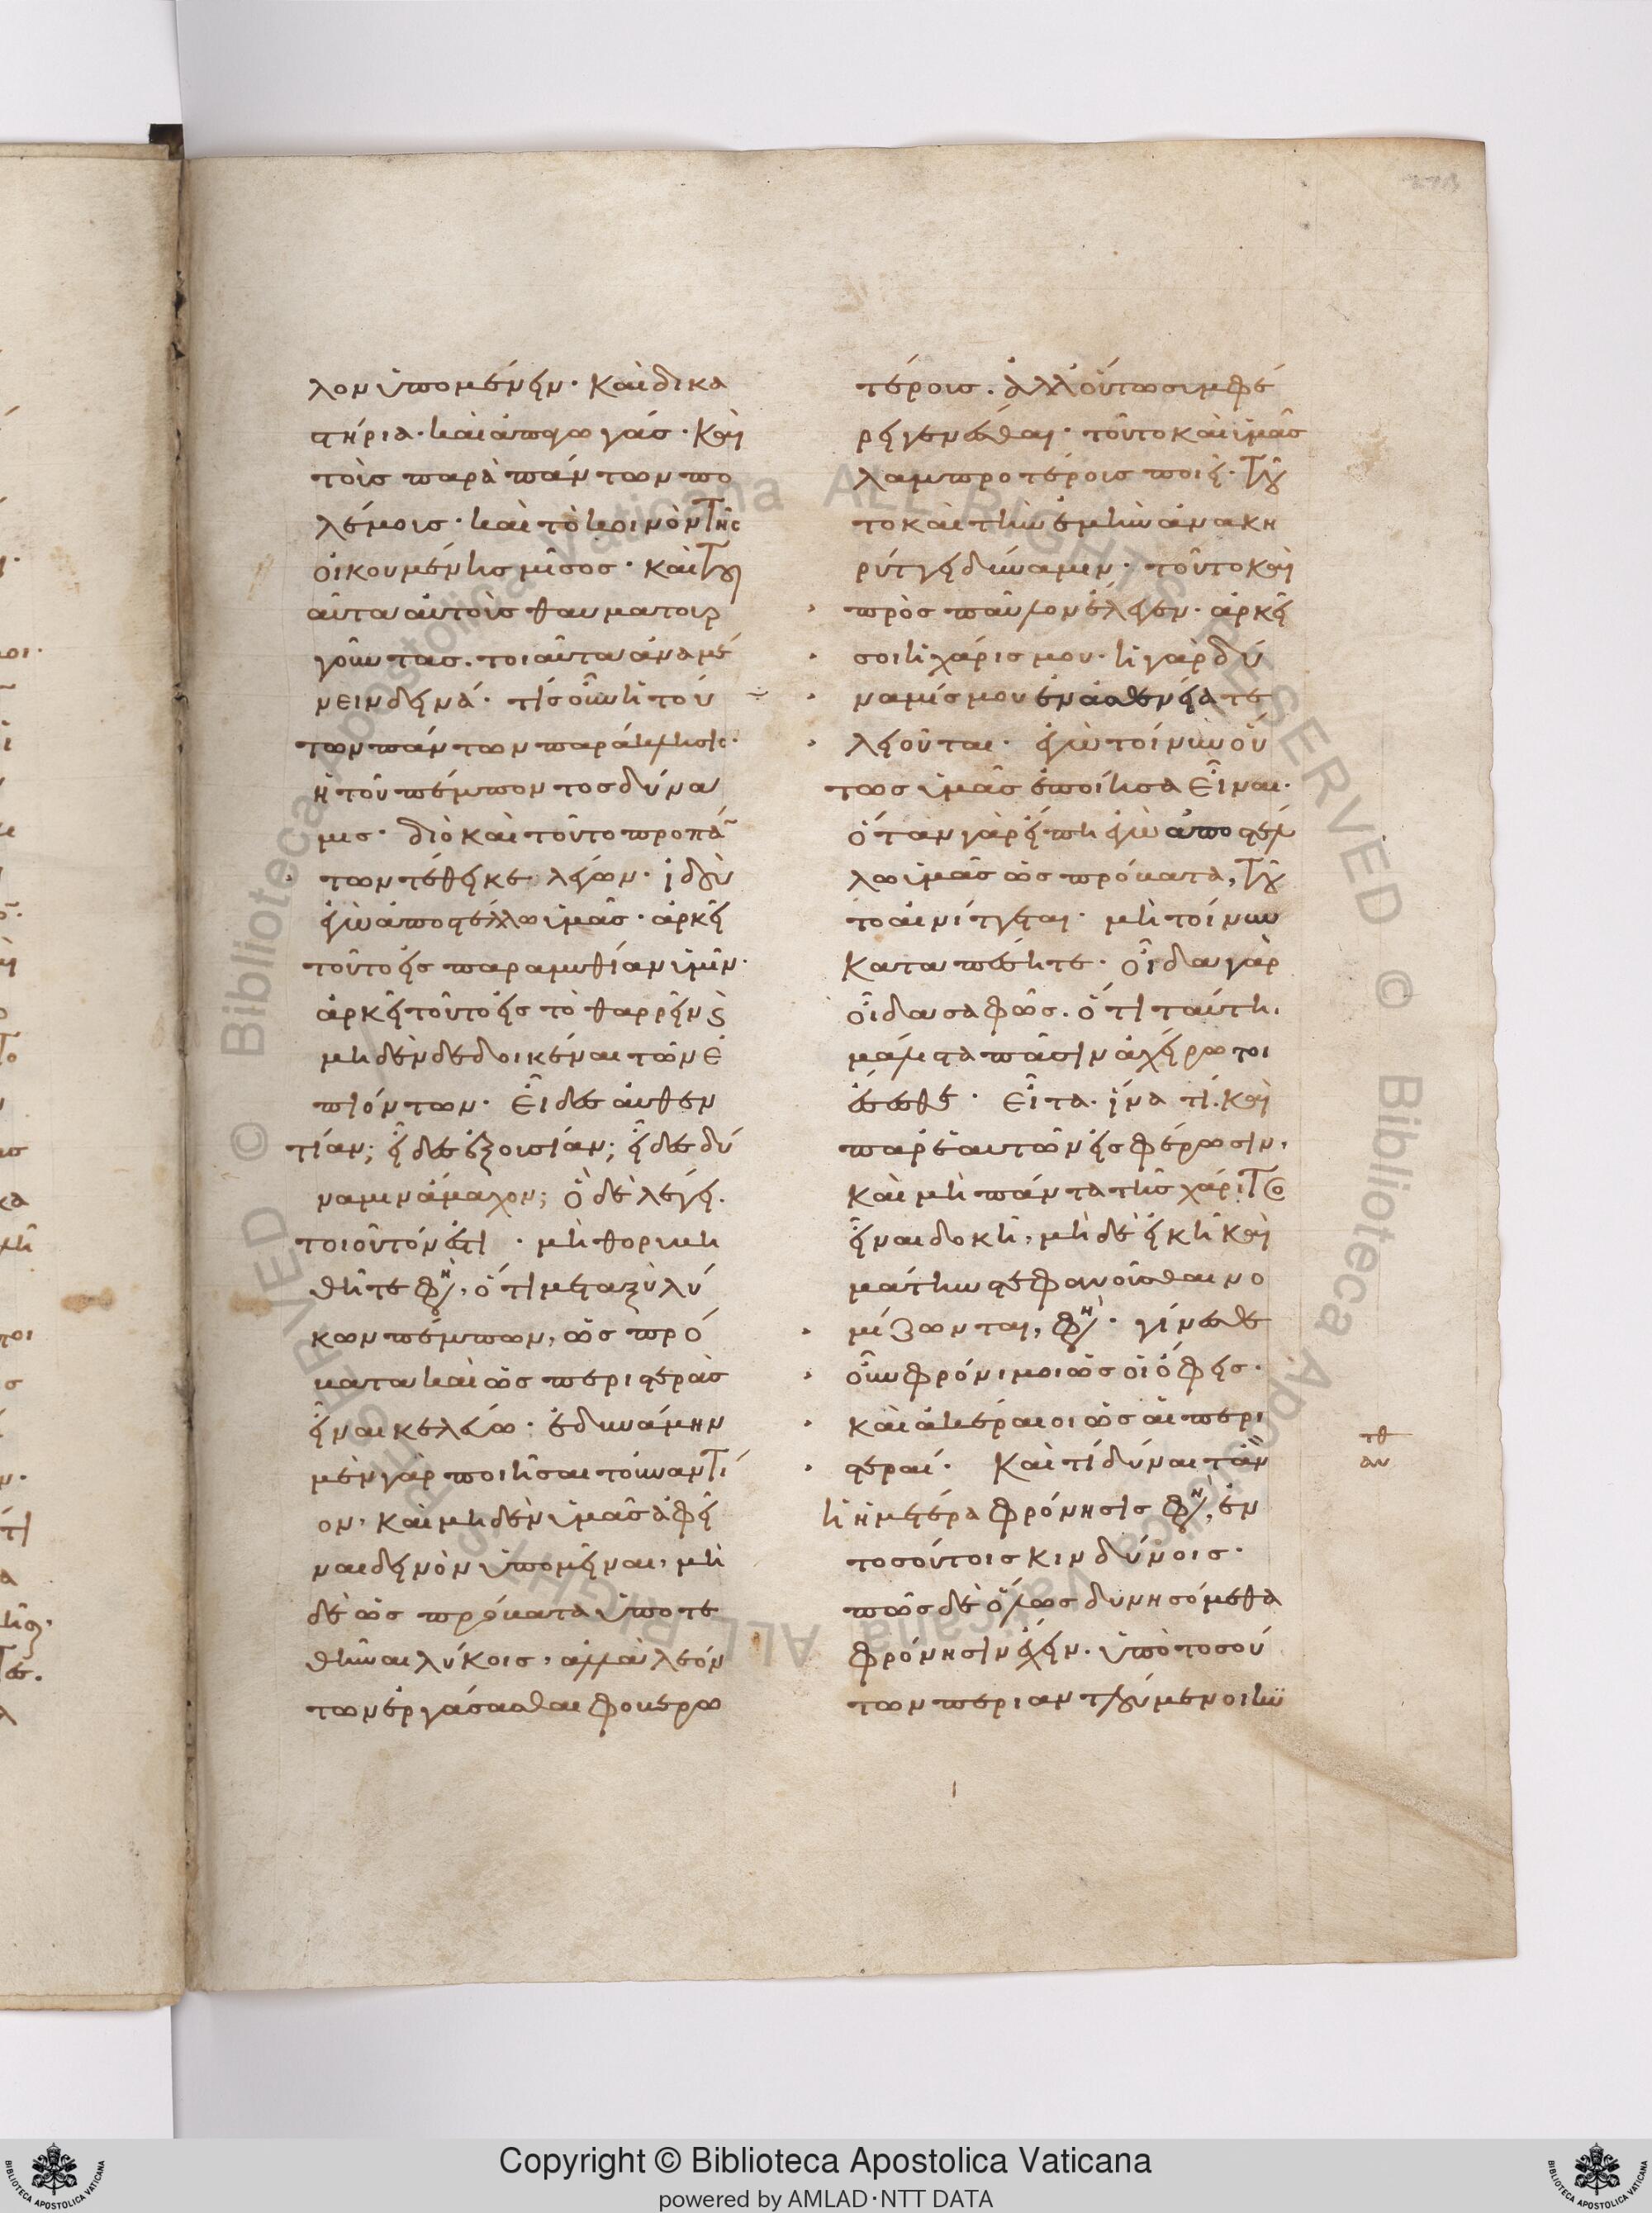 λον ὑπομένειν· καὶ δικα
στήρια· καὶ ἀπαγωγάς· καὶ
τοῖς παρὰ πάντων πο
λέμοις· καὶ τὸ κοινὸν τῆς
οἰκουμένης μῖσος· καὶ τοι
αῦτα αὐτοῖς θαυματουρ
γοῦντας. τοιαῦτα ἀναμέ
νειν δεινά· τίς οὖν ἡ τού
των πάντων παράκλησις·
ἡ τοῦ πέμποντος δύνα
μις· διὸ καὶ τοῦτο προπάν
των τέθεικε λέγων· ἰδοὺ
ἐγὼ ἀποστέλλω ὑμᾶς· ἀρκεῖ
τοῦτο εἰς παραμυθίαν ὑμῖν·
ἀρκεῖ τοῦτο εἰς τὸ θαρρεῖν καὶ
μηδὲν δεδοικέναι τῶν ἐ
πιόντων· εἶδες αὐθεν
τίαν; εἶδες ἐξουσίαν; εἶδες δύ
ναμιν ἄμαχον; ὃ δὲ λέγει.
τοιοῦτόν ἐστι · μὴ θορυβη
θῆτε φησὶν, ὅτι μεταξὺ λύ
κων πέμπων, ὡς πρό
βατα καὶ ὡς περιστερὰς
εἶναι κελεύω· ἐδυνάμην
μὲν γὰρ ποιῆσαι τοὐναντί
ον, καὶ μηδὲν ὑμᾶς ἀφεῖ
ναι δεινὸν ὑπομεῖναι, μη
δὲ ὡς πρόβατα ὑποτε
θῆναι λύκοις, ἀλλὰ λεόν
των ἐργάσασθαι φοβερω
τέροις. ἀλλ' οὕτω συμφέ
ρει γενέσθαι· τοῦτο καὶ ὑμᾶς
λαμπροτέροις ποιεῖ· τοῦ
το καὶ τὴν ἐμὴν ἀνακη
ρύττει δύναμιν· τοῦτο καὶ
πρὸς παῦλον ἔλεγεν· ἀρκεῖ
σοι ἡ χάρις μου· ἡ γὰρ δύ
ναμίς μου ἐν ἀσθενείᾳ τε
λειοῦται· ἐγὼ τοίνυν οὕ
τως ὑμᾶς ἐποίησα εἶναι·
ὅταν γὰρ εἴπῃ ἐγὼ ἀποστέλ
λω ὑμᾶς ὡς πρόβατα, τοῦ
το αἰνίττεται· μὴ τοίνυν
καταπέσητε· οἶδα γὰρ
οἶδα σαφῶς. ὅτι ταύτῃ.
μάλιστα πᾶσιν ἀχείρωτοι
ἔσεσθε· εἶτα. ἵνα τὶ. καὶ
παρ' ἑαυτῶν εἰσφέρωσιν.
καὶ μὴ πάντα τῆς χάριτος
εἶναι δοκῇ, μὴ δὲ εἰκῇ καὶ
μάτην στεφανοῦσθαι νο
μίζωνται, φησὶ· γίνεσθε
οὖν φρόνιμοι ὡς οἱ ὄφεις·
καὶ ἀκέραιοι ὡς αἱ περι
στεραί· καὶ τί δύναιτ' ἂν
ἡ ἡμετέρα φρόνησις φησὶν, ἐν
τοσούτοις κινδύνοις·
πῶς δὲ ὅλως δυνησόμεθα
φρόνησιν ἔχειν· ὑπὸ τοσού
των περιαντλούμενοι κυ